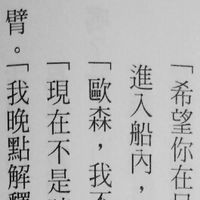 「希望你在
進入船內，
「歐森，我不
「現在不是
臂。「我晚點解釋